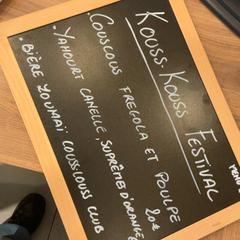 MENU
KOUSS.KOUSS FESTIVAL
COUSCOUS FREGOLA ET POULPE
20€
• YAHOURT CANELLE, SUPRÊME D'ORANGE
• BIÈRE YOUMAÏ COUSSLOUSS CLUB